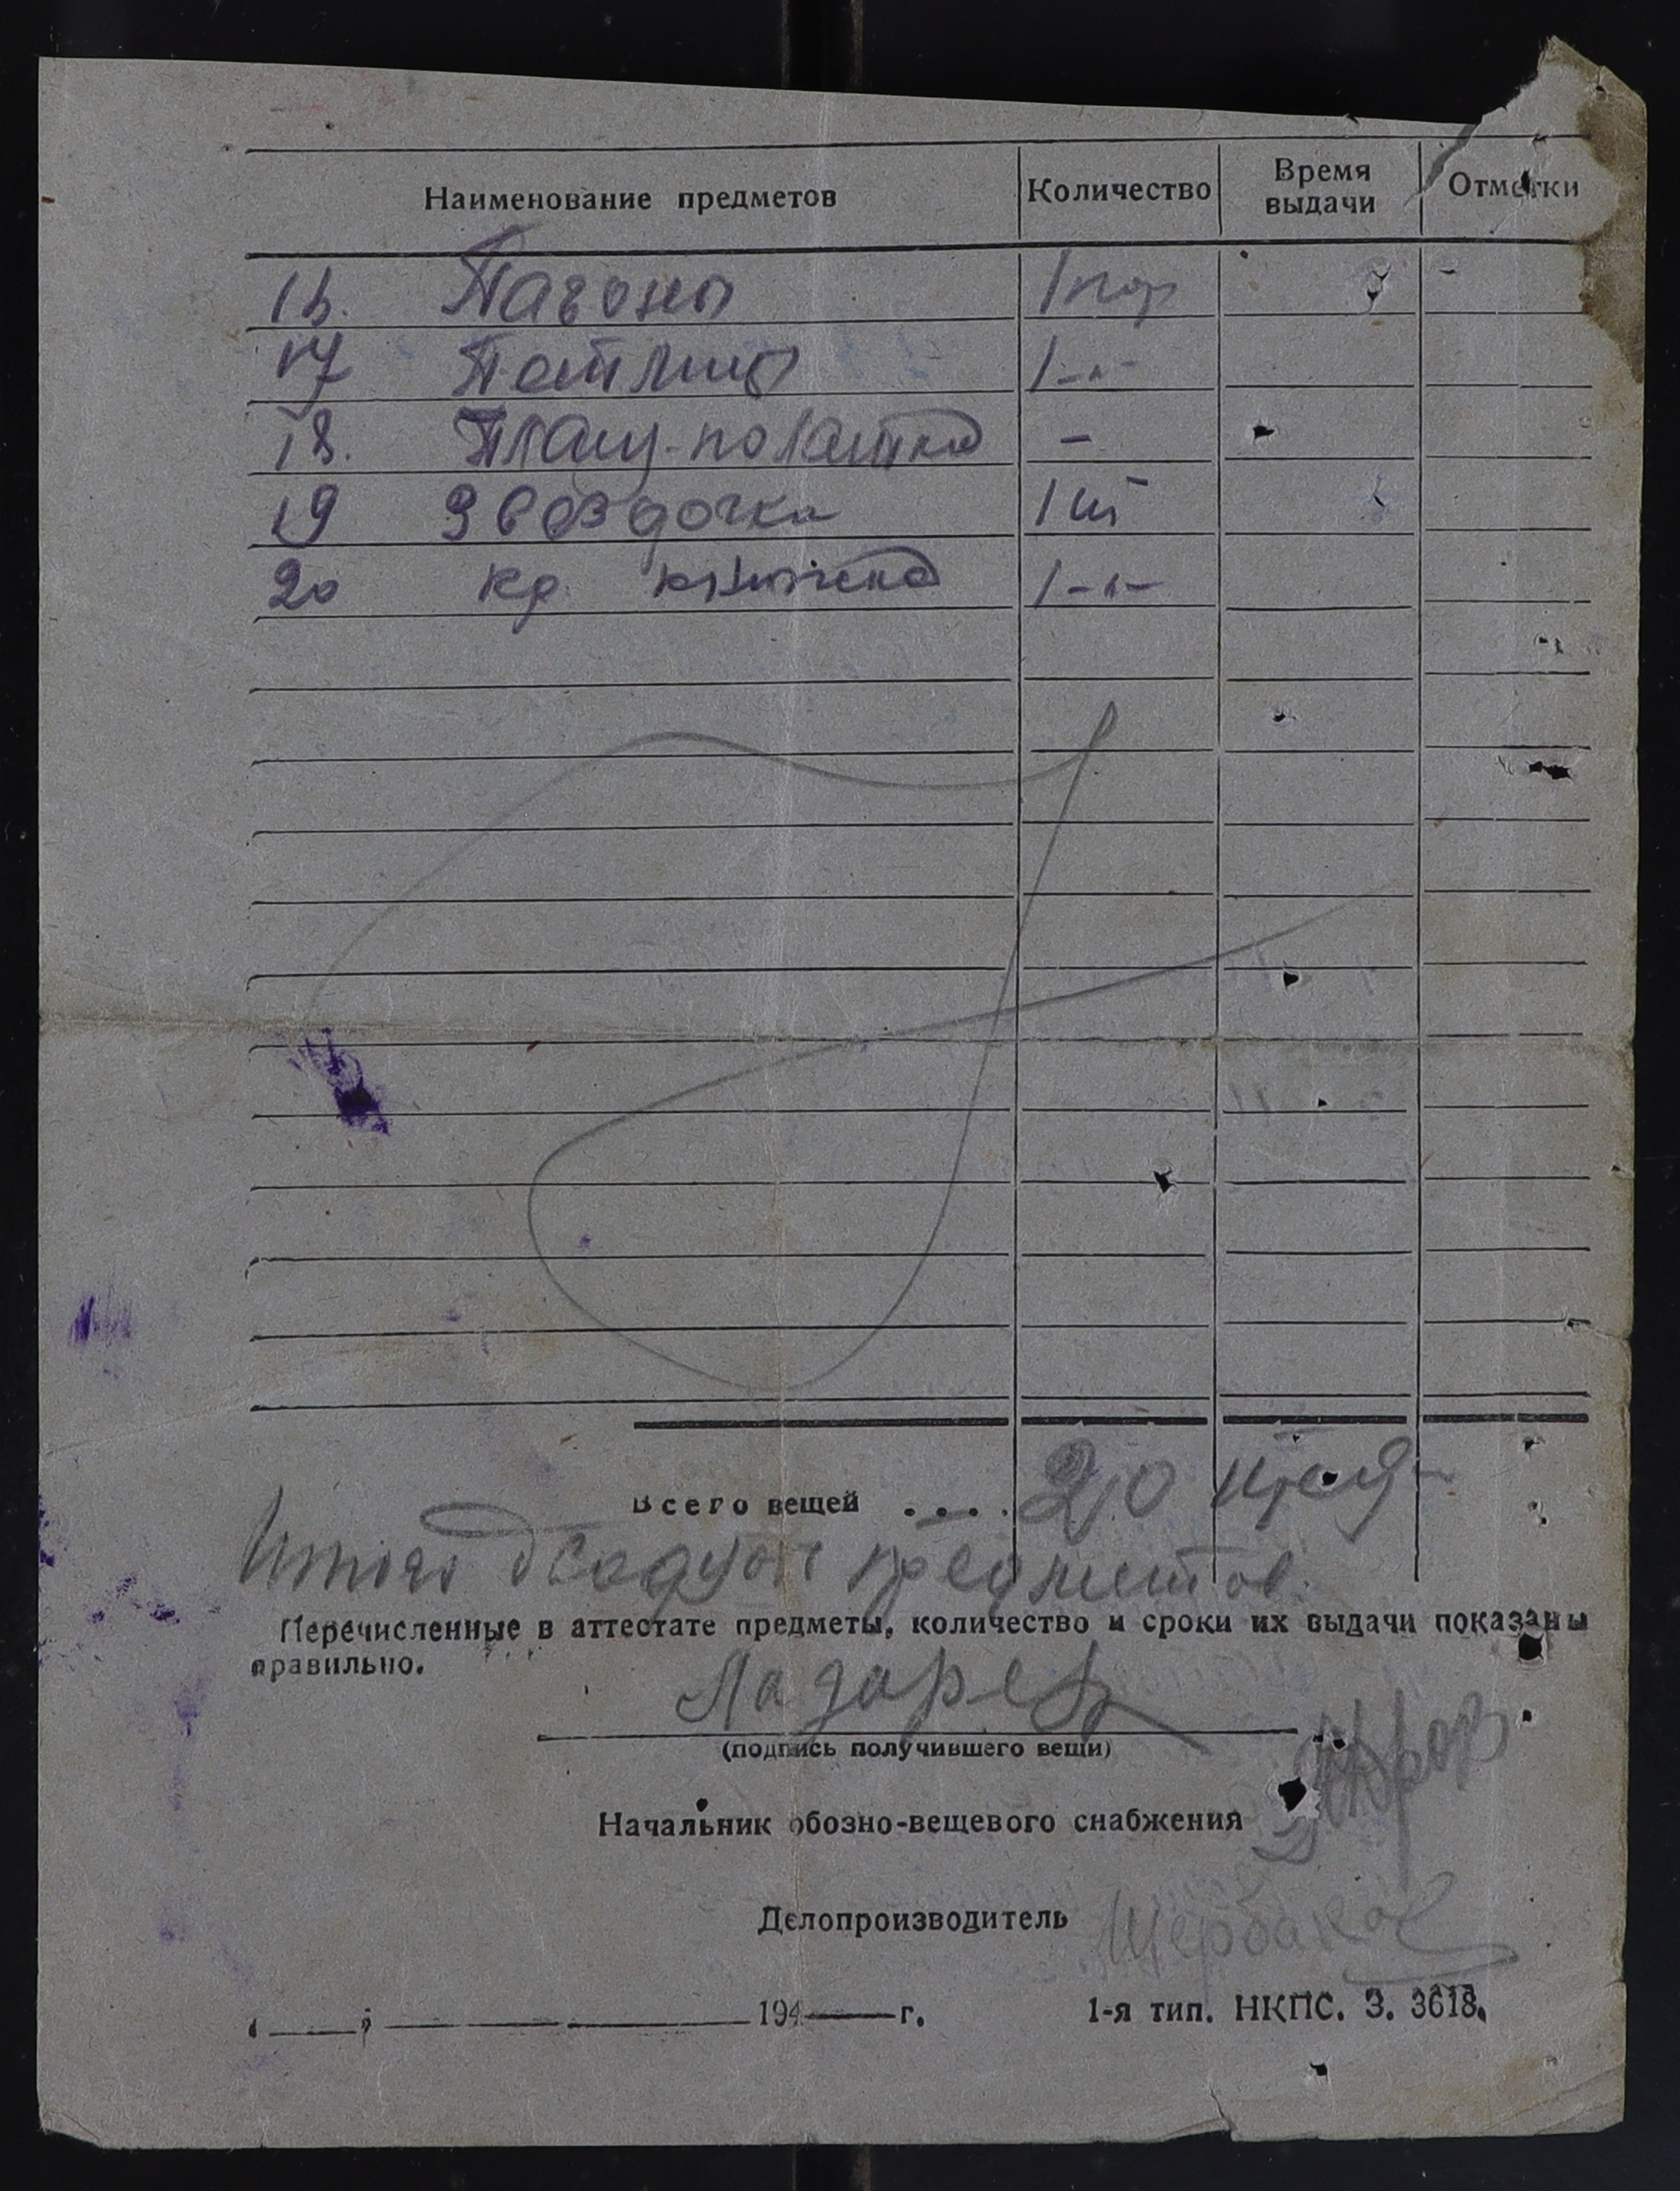 Наименование предметов Количество Время выдачи Отметки
16. Пагоны 1 пар
17 Петлицы 1 -"-
18. Плащ-полатка -
19 Звездочка 1 ш
20 кр. книжка 1 -"-
Всего вещей .... 20
Итого двадцать предметов.
Перечисленные в аттестате предметы, количество и сроки их выдачи показаны
правильно.
Лазарев
(подпись получившего вещи)
Начальник обозно-вещевого снабжения
Делопроизводитель Щербаков
" " 194 г. 1-я тип. НКПС. З. 3618.